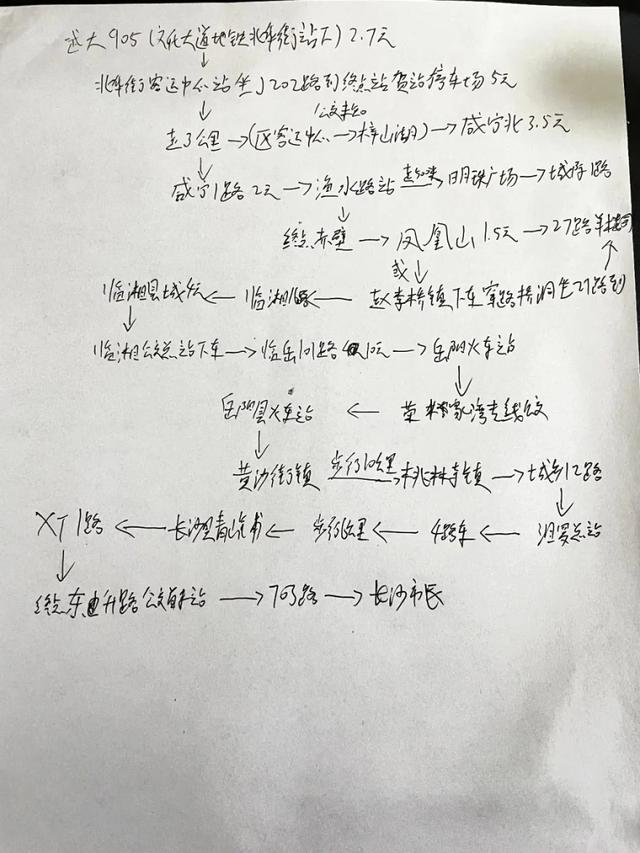 远大905(文化大道地铁北华街站下) 2.7元
北华街客运中心站坐J202路到终点站贺站停车场5元
公交未知
走3公里→(区客运中心→梓山湖)→咸宁北3.5元
咸宁1路2元→渔水路站 明珠广场→城际1路
终点赤壁→凤凰山1.5元→27路羊楼司
或
临湘县城 ←临湘16路←赵李桥镇下车穿路桥洞坐27路到
临湘公交总站下车→临岳101路 10元→岳阳火车站
岳阳县火车站←荣家湾专线公交
黄沙街镇 步行10公里 桃林寺镇→城乡12路
XT1路←长沙里青山铺←步行6公里←4路车←汨罗总站
终点东升路公交首末站→703路→长沙市民